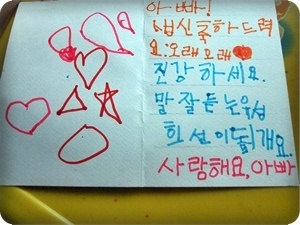 아빠!
생신축하드려
요. 오래오래
건강하세요.
말 잘 듣는 우성
희선이 될개요.
사랑해요, 아빠